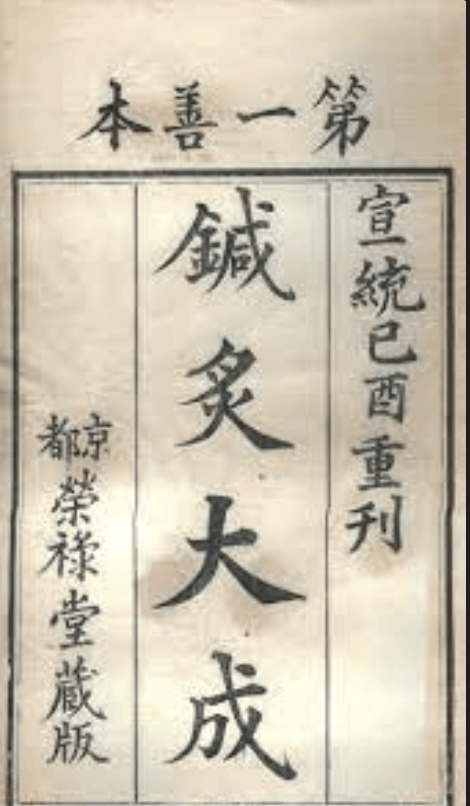 第一善本
宣統己酉重刊
鍼炙大成
京都榮祿堂藏版